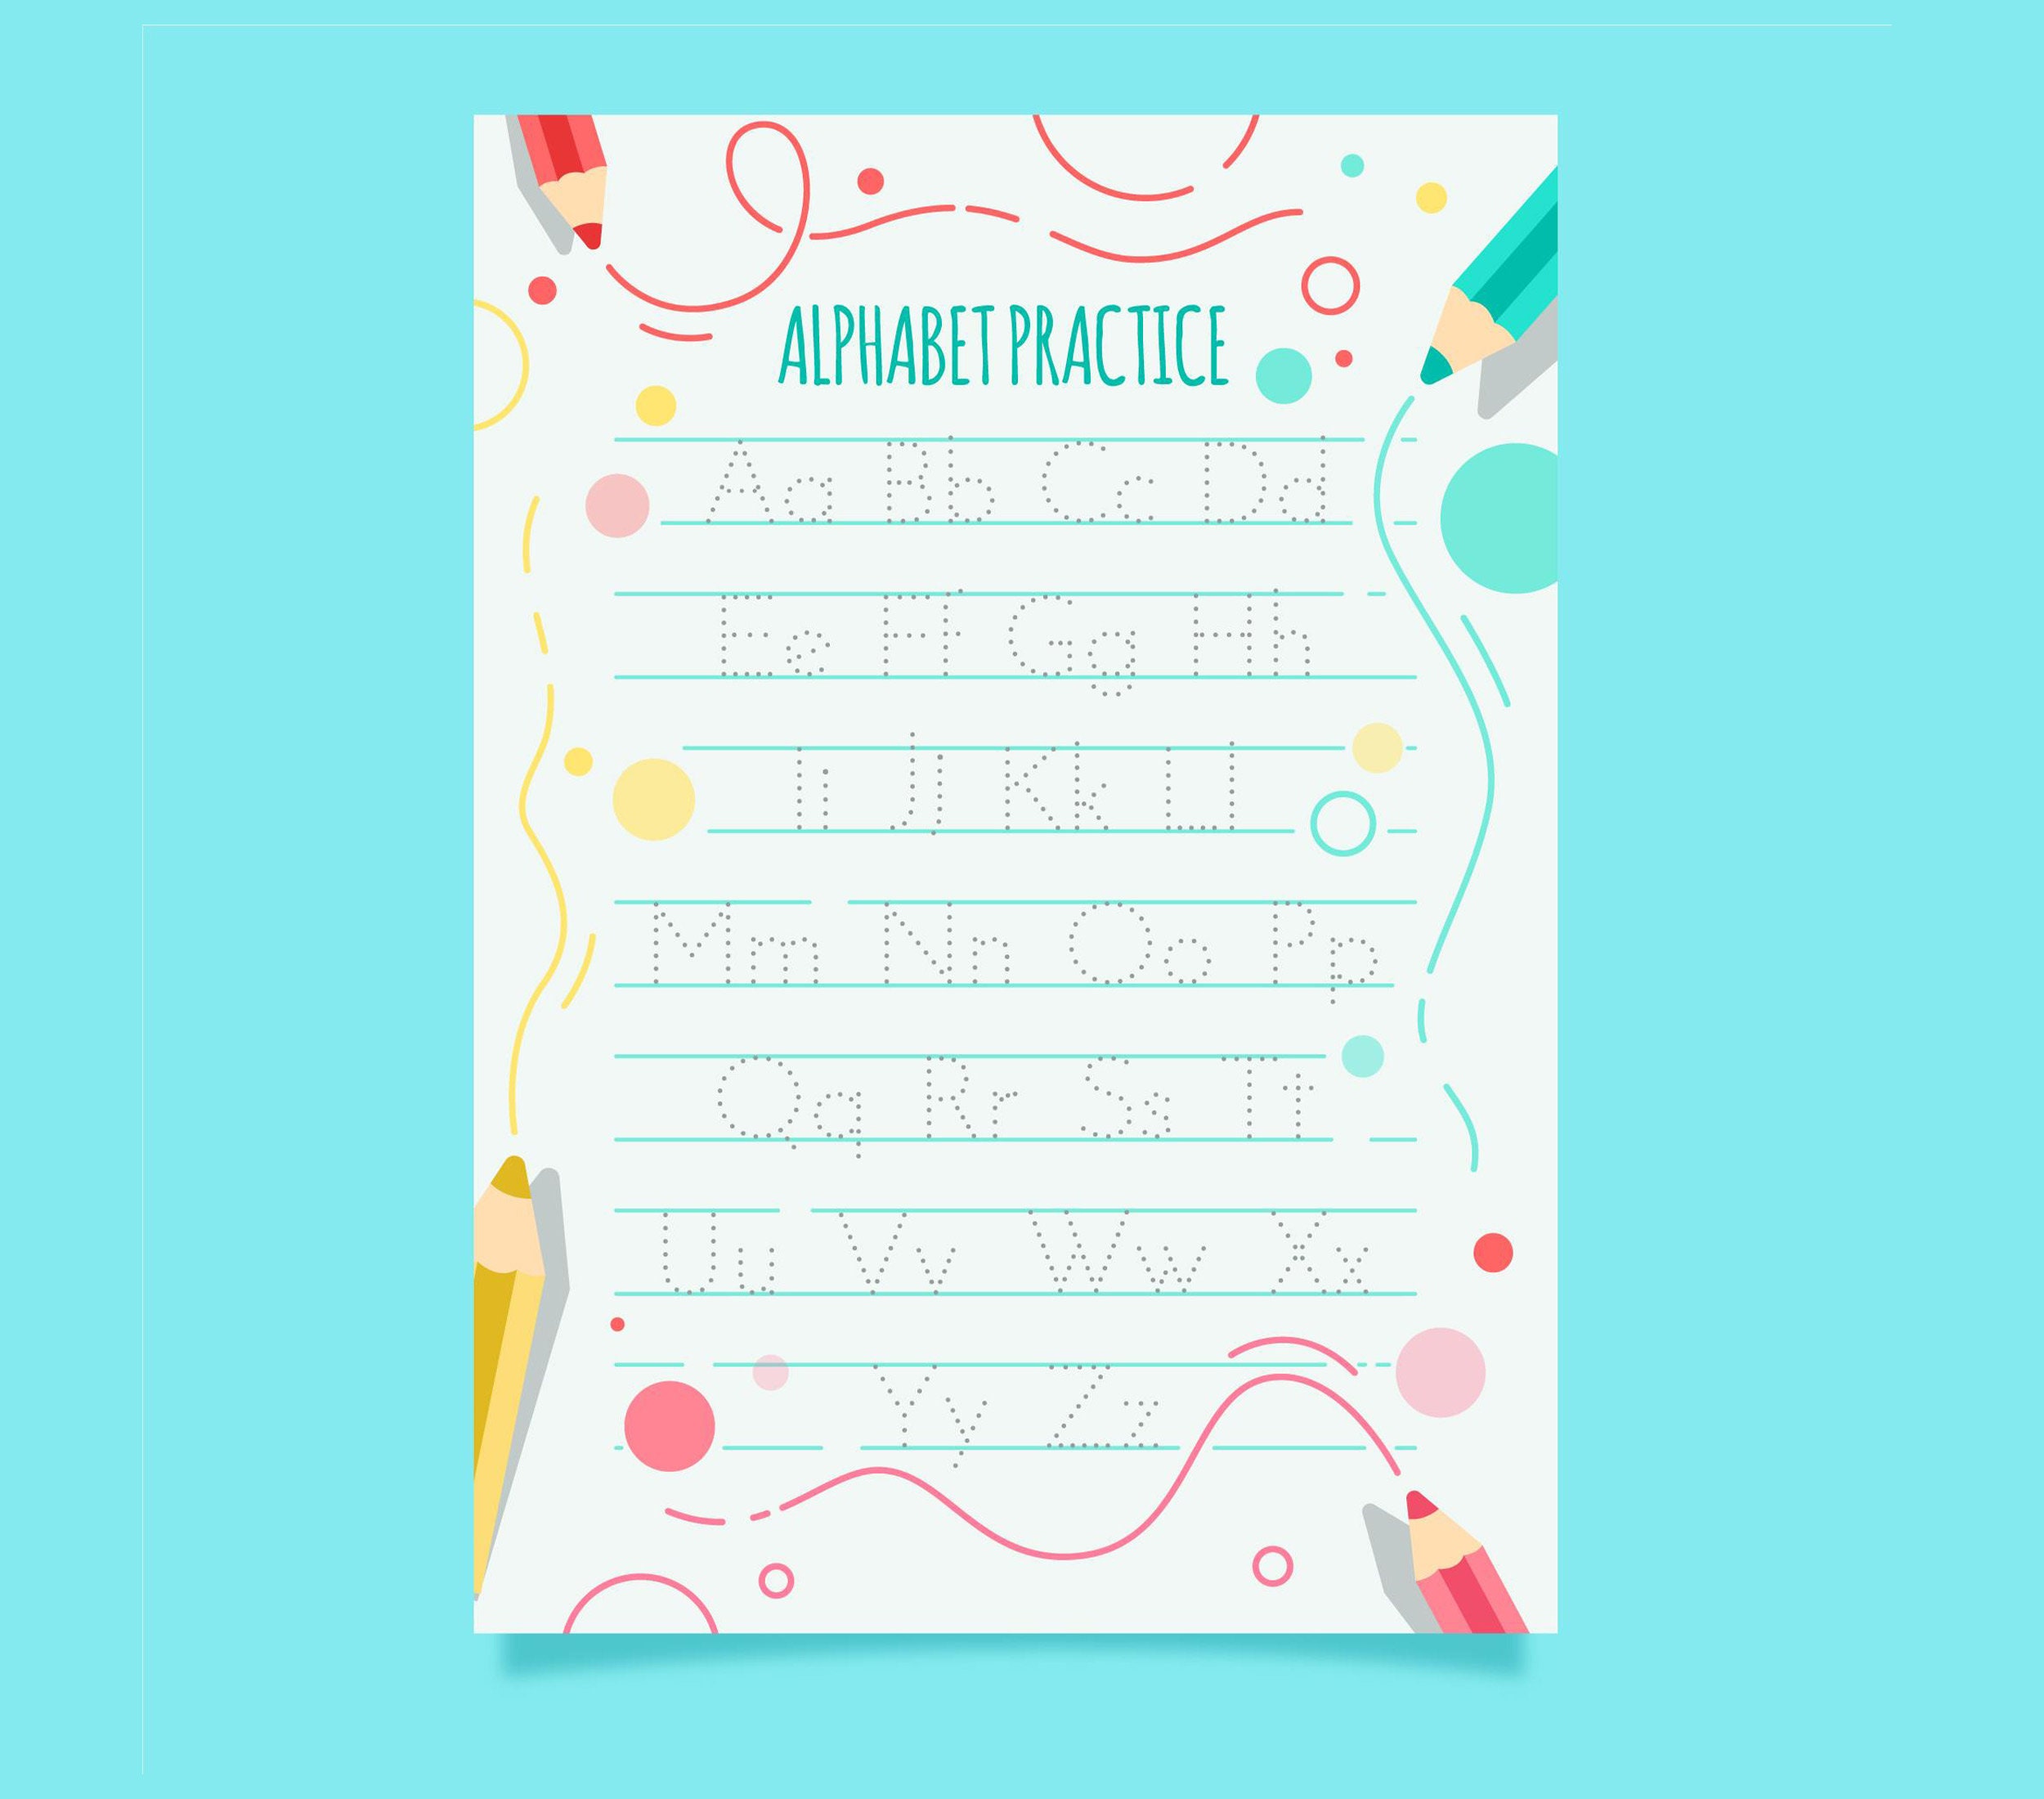 ALPHABET PRACTICE
Aa Bb Cc Dd
Ee Ff Gg Hh
Ii Jj Kk Ll
Mm Nn Oo Pp
Qq Rr Ss Tt
Uu Vv Ww Xx
Yy Zz